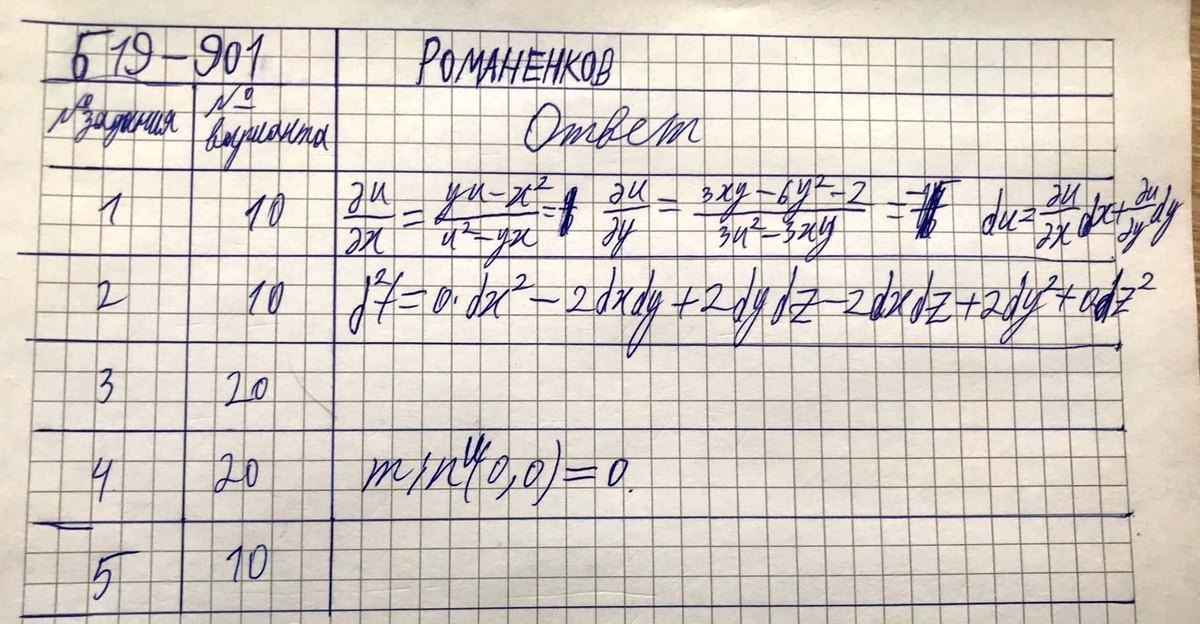 Б19-901 РОМАНЕНКОВ
№ задания № варианта Ответ
1 10 ∂u/∂x = (yu-x²)/(u²-yx) = ∂u/∂y = (3xy-6y²-2)/(3u²-3xy) = du = ∂u/∂x dx + ∂u/∂y dy
2 10 d²f = 0·dx² - 2dxdy + 2dydz - 2dxdz + 2dy² + 0dz²
3 20
4 20 min (0,0) = 0.
5 10